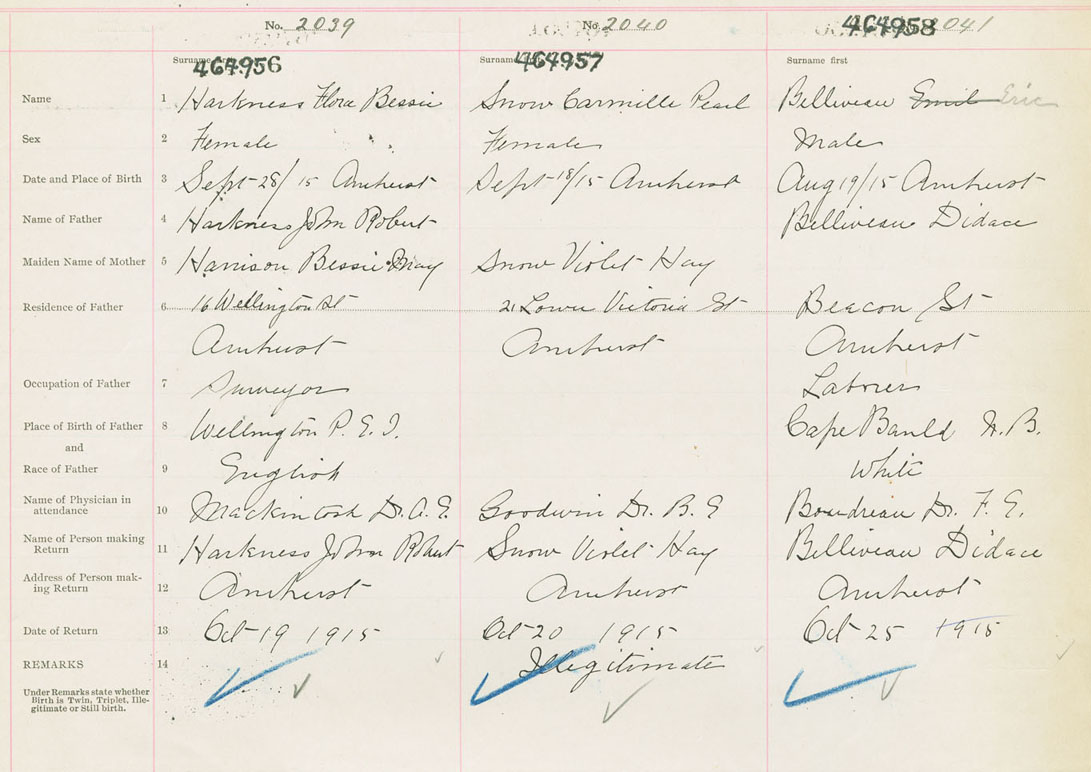 No. 2039 No. 2040 2041
464956 464957 464958
Surname first Surname first Surname first
Name 1 Harkness Flora Bessie Snow Carmille Pearl Belliveau Emil Eric
Sex 2 Female Female Male
Date and Place of Birth 3 Sept 28/15 Amherst Sept 18/15 Amherst Aug 19/15 Amherst
Name of Father 4 Harkness John Robert Belliveau Didace
Maiden Name of Mother 5 Harrison Bessie May Snow Violet Hay
Residence of Father 6 16 Wellington St 21 Lower Victoria St Beacon St
Amherst Amherst Amherst
Occupation of Father 7 Surveyor Laborer
Place of Birth of Father 8 Wellington P.E.I. Cape Bauld N.B.
and
Race of Father 9 English White
Name of Physician in
attendance 10 Mackintosh Dr. A.E. Goodwin Dr. B.E Boudreau Dr. F.E.
Name of Person making
Return 11 Harkness John Robert Snow Violet Hay Belliveau Didace
Address of Person mak-
ing Return 12 Amherst Amherst Amherst
Date of Return 13 Oct 19 1915 Oct 20 1915 Oct 25 1915
REMARKS 14 Illegitimate
Under Remarks state whether
Birth is Twin, Triplet, Ille-
gitimate or Still birth.